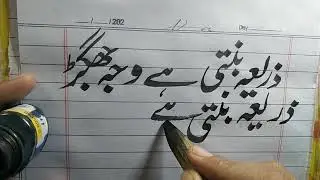 ذریعہ بنتی ہے وجہ بھگڑ
ذریعہ بنتی ہے